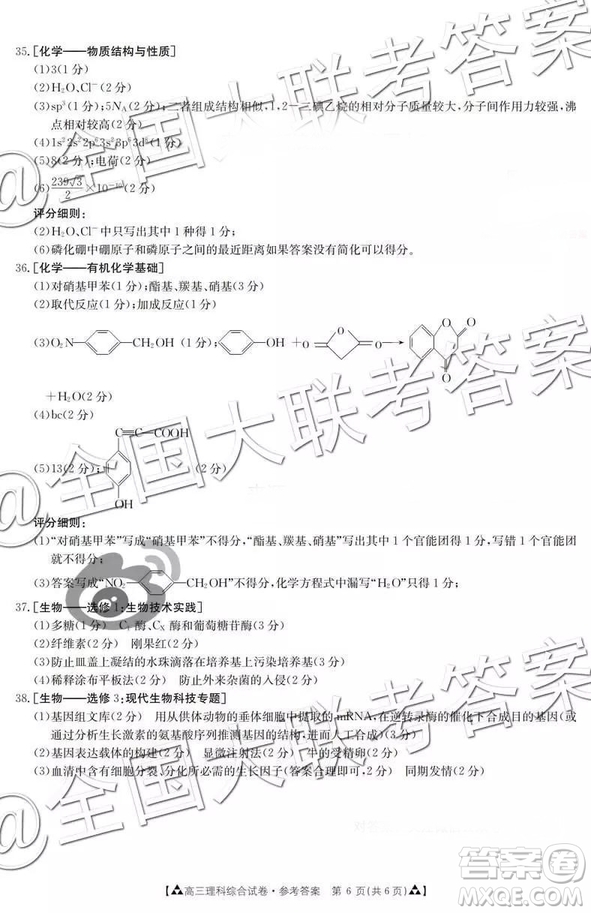 35.[化学——物质结构与性质]
(1)3(1分)
(2)H₂O、Cl⁻(2分)
(3)sp³(1分);5N_A(2分);二者组成结构相似,1,2-二碘乙烷的相对分子质量较大,分子间作用力较强,沸
点相对较高(2分)
(4)1s²2s²2p⁶3s²3p⁶3d⁸(1分)
(5)8(2分);电荷(2分)
(6)239√3/2×10⁻¹⁰(2分)
评分细则:
(2)H₂O、Cl⁻中只写出其中1种得1分;
(6)磷化硼中硼原子和磷原子之间的最近距离如果答案没有简化可以给分。
36.[化学——有机化学基础]
(1)对硝基甲苯(1分);酯基、羰基、硝基(3分)
(2)取代反应(1分);加成反应(1分)
(3)O₂N- -CH₂OH(1分); -OH + O O O → O O O
+H₂O(2分)
(4)bc(2分)
C=C-COOH
(5)13(2分); (2分)
OH
评分细则:
(1)“对硝基甲苯”写成“硝基甲苯”不得分,“酯基、羰基、硝基”只写出其中1个官能团得1分,写错1个官能团
就不得分;
(3)答案写成“NO₂- -CH₂OH”不得分,化学方程式中漏写“H₂O”只得1分;
37.[生物——选修1:生物技术实践]
(1)多糖(1分) C₁酶、C_X酶和葡萄糖苷酶(3分)
(2)纤维素(2分) 刚果红(2分)
(3)防止皿盖上凝结的水珠滴落在培养基上污染培养基(3分)
(4)稀释涂布平板法(2分) 防止外来杂菌落入(2分)
38.[生物——选修3:现代生物科技专题]
(1)基因组文库(2分) 用从供体动物的垂体细胞中提取的mRNA,在逆转录酶的催化下合成目的基因(或
通过分析生长激素的氨基酸序列推测基因序列,进而人工合成)(3分)
(2)基因表达载体的构建(2分) 显微注射法(1分) 牛的受精卵(2分)
(3)血清中含有细胞分裂、分化所必需的生长因子(答案合理即可,3分) 同期发情(2分)
高三理科综合试卷·参考答案 第6页(共6页)
@全国大联考答案
@全国大联考答案
@全国大联考答案
答案圈
MXQE.COM